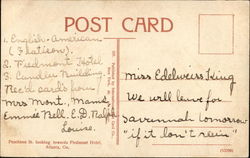 POST CARD
1. English-American
(Flatiron).
2. Piedmont Hotel
3. Candler Building.
Rec'd cards from
Mrs Mont., Mamie,
Emmie Nell. E.D. Ralph
Louise.
Miss Edelweiss King
We will leave for
Savannah tomorrow
"if it don't rain"
Peachtree St. looking towards Piedmont Hotel,
Atlanta, Ga.